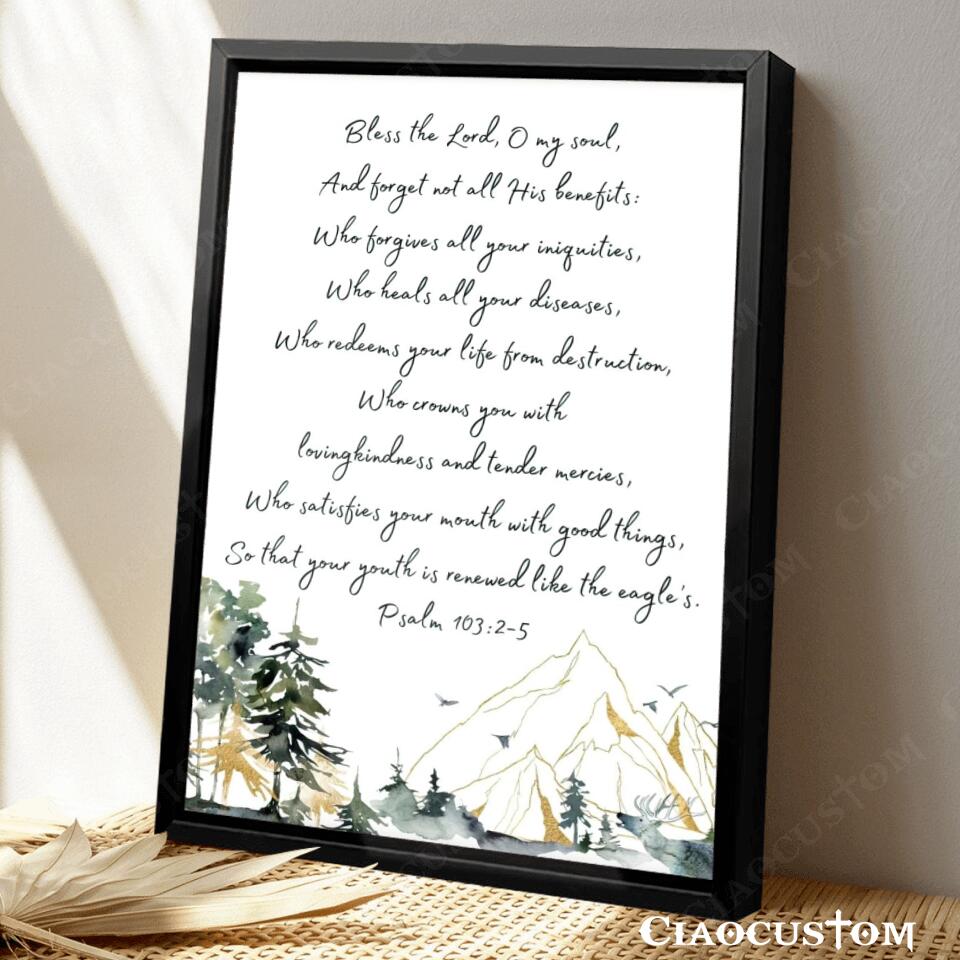 Bless the Lord, O my soul,
And forget not all His benefits:
Who forgives all your iniquities,
Who heals all your diseases,
Who redeems your life from destruction,
Who crowns you with
lovingkindness and tender mercies,
Who satisfies your mouth with good things,
So that your youth is renewed like the eagle's.
Psalm 103:2-5
Ciaocustom